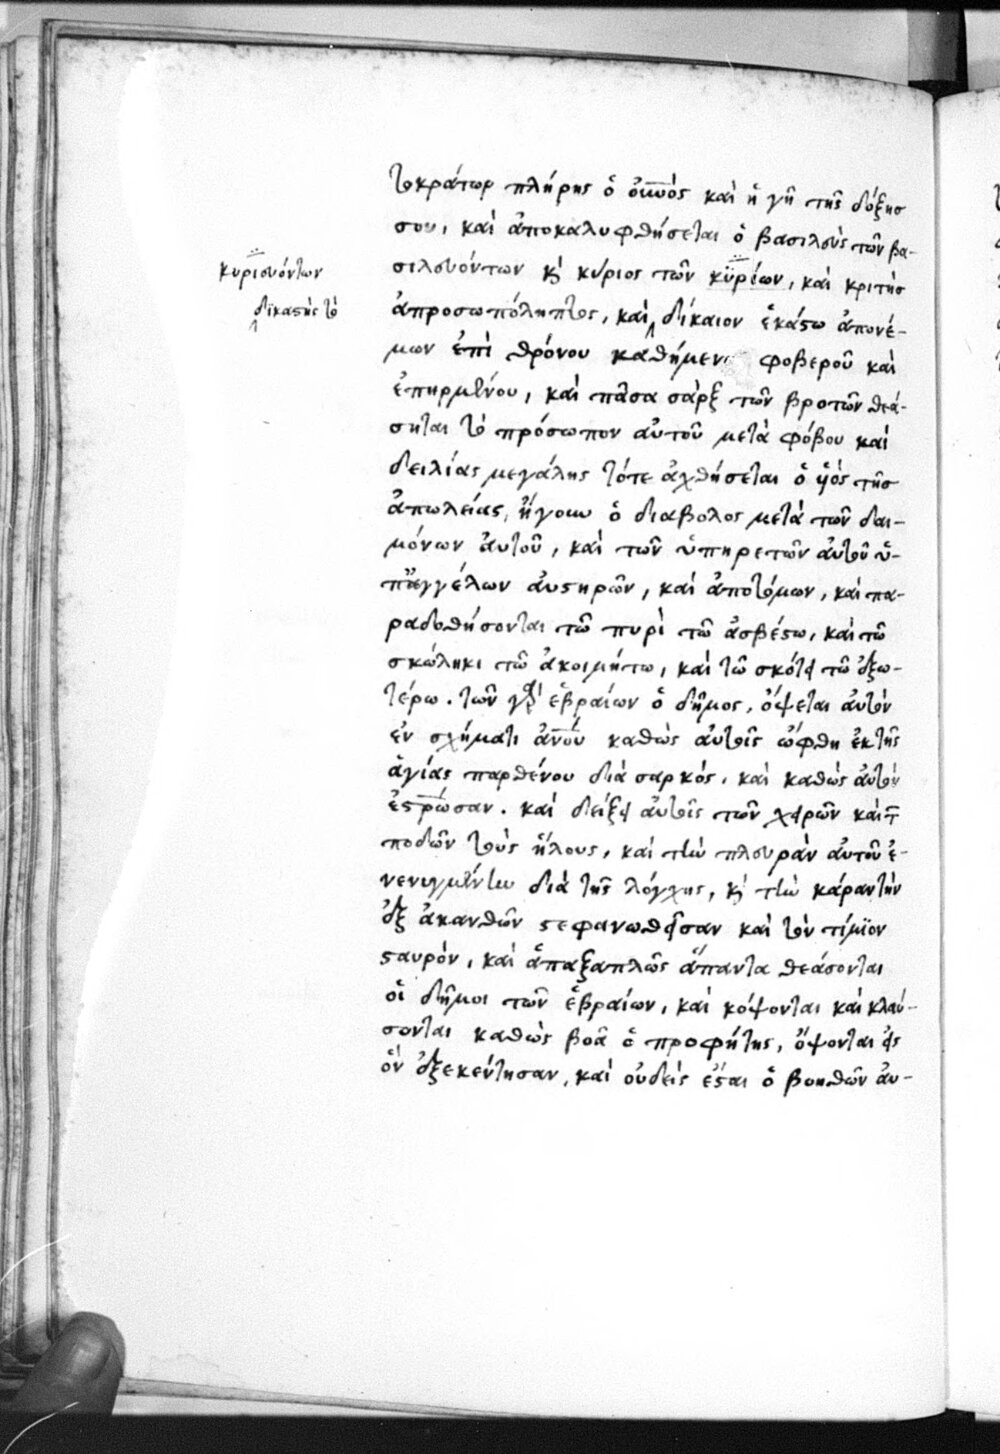 τοκράτωρ πλήρης ὁ οὐνὸς καὶ ἡ γῆ τῆς δόξης
σου, καὶ ἀποκαλυφθήσεται ὁ βασιλεὺς τῶν βα-
κυριευόντων
σιλευόντων κ̀ κύριος τῶν κϋρίων, καὶ κριτὴς
δϊκαστὴς τὸ
ἀπροσωπόληπτος, καὶ δίκαιον ἑκάστω ἀπονέ-
μων ἐπὶ θρόνου καθήμεν φοβεροῦ καὶ
ἐπηρμένου, καὶ πᾶσα σὰρξ τῶν βροτῶν θεά-
σηται τὸ πρόσωπον αὐτοῦ μετὰ φόβου καὶ
δειλίας μεγάλης τότε ἀχθήσεται ὁ ὑὸς τῆς
ἀπωλείας, ἤγουν ὁ διαβολος μετὰ τῶν δαι-
μόνων ἀυτοῦ, καὶ τῶν ὑπηρετῶν ἀυτοῦ ὑ-
π' ἀγγέλων ἀυστηρῶν, καὶ ἀποτόμων, καὶ πα-
ραδοθήσονται τῶ πυρὶ τῶ ἀσβέστω, καὶ τῶ
σκώληκι τῶ ἀκοιμήτω, καὶ τῶ σκότει τῶ ἐξω-
τέρω. τῶν δὲ ἑβραίων ὁ δῆμος, ὄψεται ἀυτὸν
ἐν σχήματι ἀνοῦ καθὼς ἀυτοῖς ὤφθη ἐκ τῆς
ἁγίας παρθένου διὰ σαρκός, καὶ καθὼς ἀυτὸν
ἐστρωσαν. καὶ δείξει ἀυτοῖς τῶν χειρῶν καὶ τ
ποδῶν τοὺς ἥλους, καὶ τὴν πλευρὰν αὐτοῦ ἐ-
νενιγμένην διὰ τῆς λόγχης, κ̀ τὴν κάραν τὴν
ἐξ ἀκανθῶν στεφανωθεῖσαν καὶ τὸν τίμϊον
σταυρόν, καὶ ἁπαξαπλῶς ἅπαντα θεάσονται
οἱ δῆμοι τῶν ἑβραίων, καὶ κόψονται καὶ κλαύ-
σονται καθὼς βοᾶ ὁ προφήτης, ὄψονται εἰς
ὃν ἐξεκέντησαν, καὶ οὐδεὶς ἔσται ὁ βοηθῶν ἀυ-